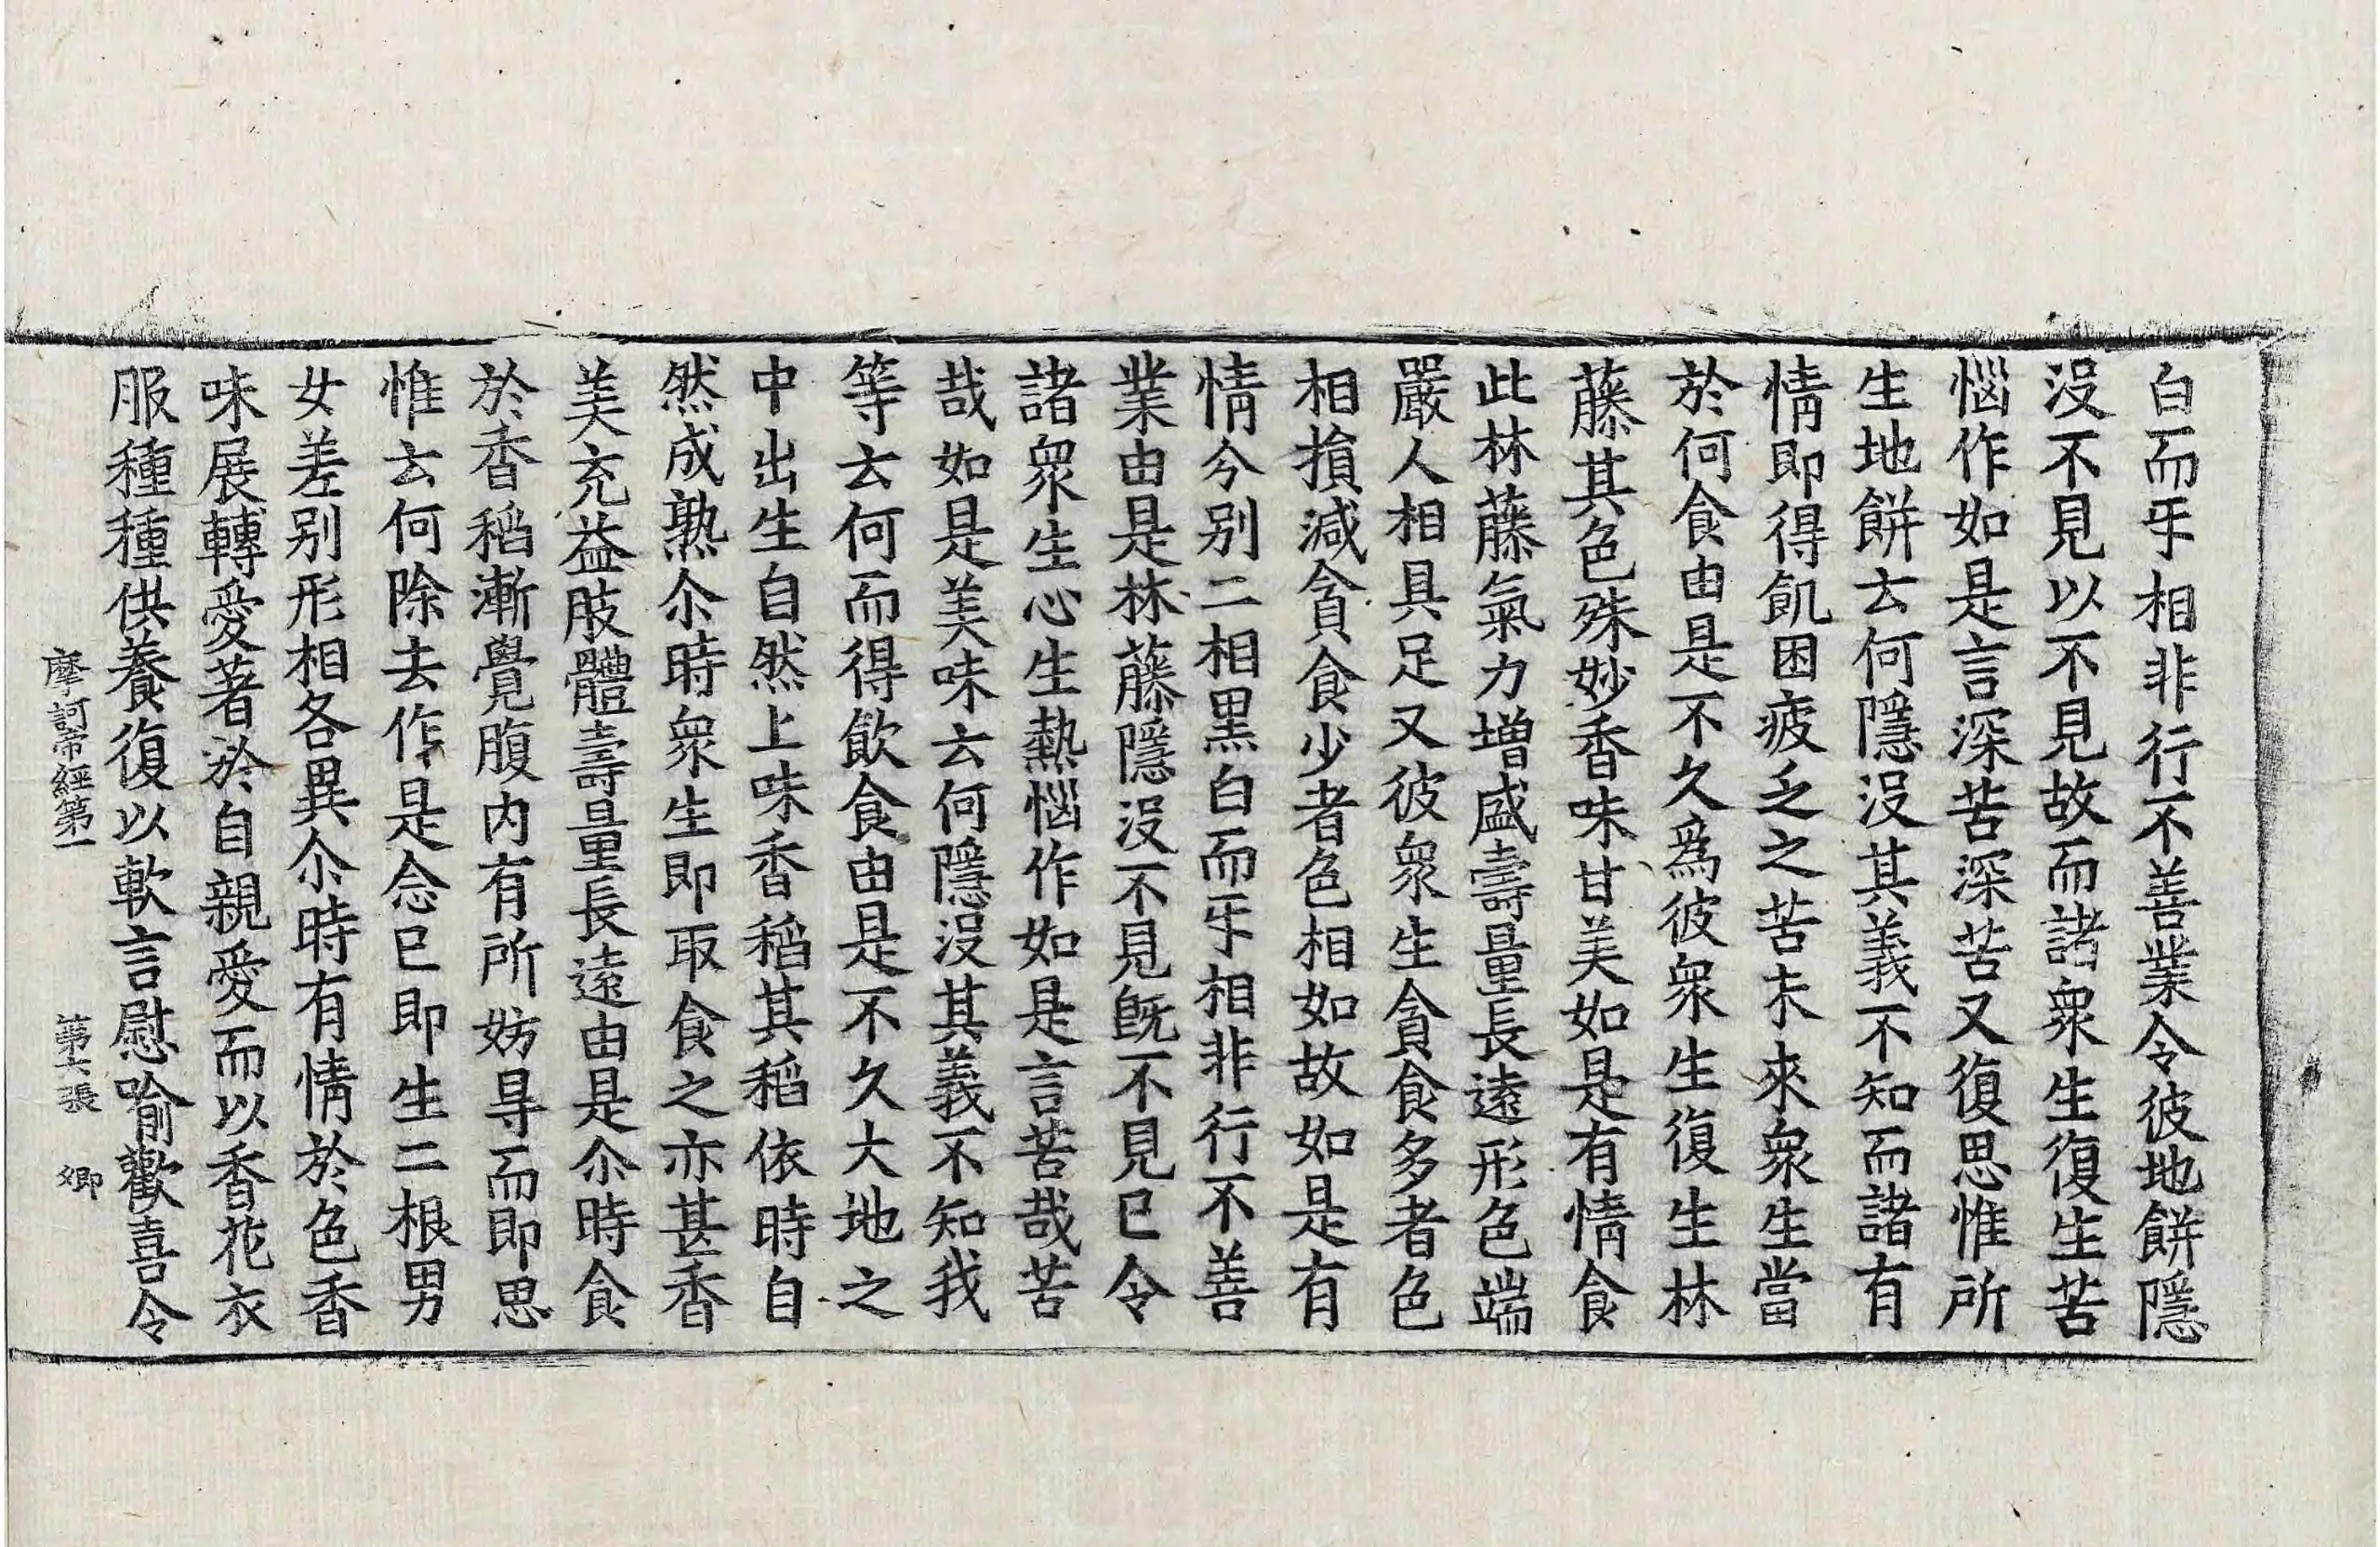 白而互相非行不善業令彼地餅隱
沒不見以不見故而諸衆生復生苦
惱作如是言深苦深苦又復思惟所
生地餅去何隱沒其義不知而諸有
情即得飢困疲乏之苦未來衆生當
於何食由是不久爲彼衆生復生林
藤其色殊妙香味甘美如是有情食
此林藤氣力增盛壽量長遠形色端
嚴人相具足又彼衆生貪食多者色
相損減貪食少者色相如故如是有
情今別二相黑白而互相非行不善
業由是林藤隱沒不見旣不見已令
諸衆生心生熱惱作如是言苦哉苦
哉如是美味云何隱沒其義不知我
等云何而得飲食由是不久大地之
中出生自然上味香稻其稻依時自
然成熟尒時衆生即取食之亦甚香
美充益肢體壽量長遠由是尒時食
於香稻漸覺腹內有所妨㝵而即思
惟云何除去作是念已即生二根男
女差别形相各異尒時有情於色香
味展轉愛著於自親愛而以香花衣
服種種供養復以軟言慰喻歡喜令
摩訶帝經第一 第六張 卿